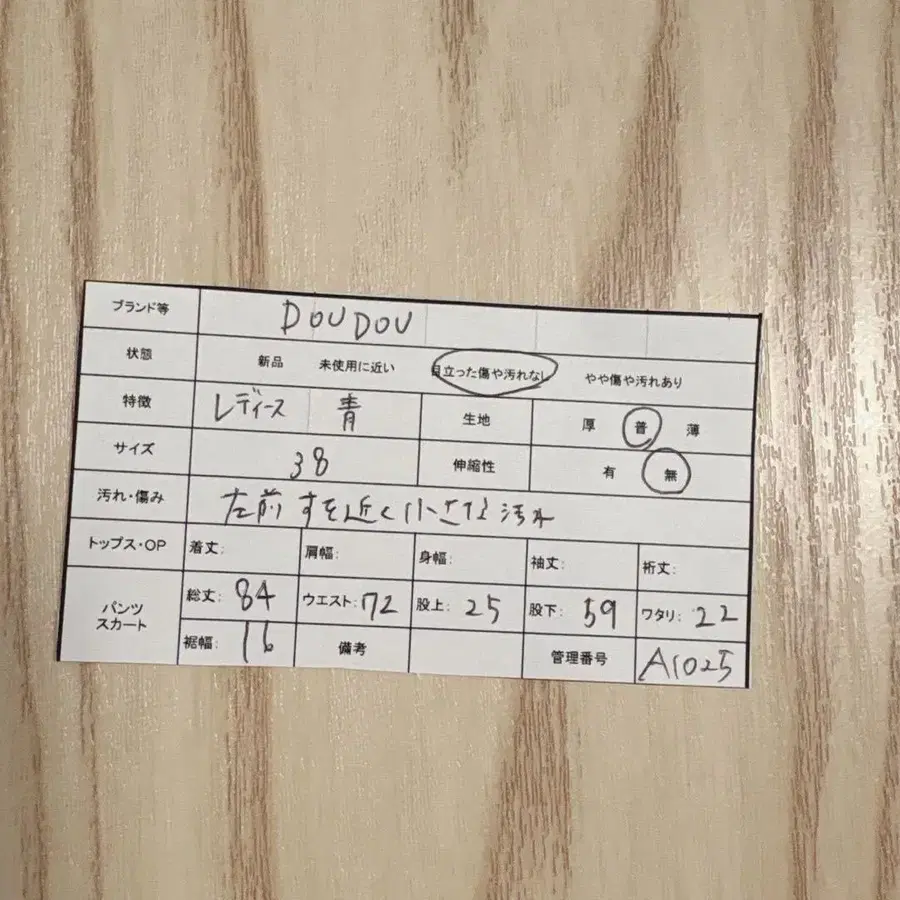 ブランド等 DOUDOU
状態 新品 未使用に近い 目立った傷や汚れなし やや傷や汚れあり
特徴 レディース 青 生地 厚 普 薄
サイズ 38 伸縮性 有 無
汚れ・傷み 左前 すそ近く小さな汚れ
トップス・OP 着丈: 肩幅: 身幅: 袖丈: 裄丈:
パンツ スカート 総丈: 84 ウエスト: 72 股上: 25 股下: 59 ワタリ: 22
裾幅: 16 備考 管理番号 A1025